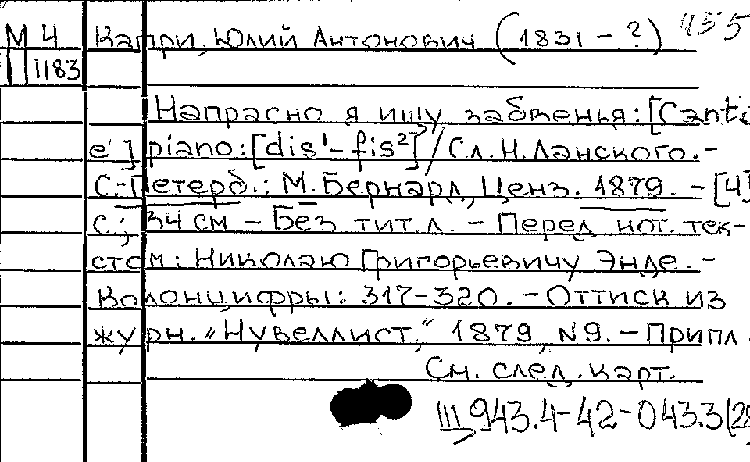 М 4 Капри, Юлий Антонович (1831 - ?) 455
П 1183
Напрасно я ищу забвенья: [Canti
e'] piano: [dis¹-fis²] / Сл. Н. Ланского. -
С.-Петерб.: М. Бернард, Ценз. 1879. - [4]
с.; 34 см - Без тит. л. - Перед нот. тек-
стом: Николаю Григорьевичу Энде. -
Колонцифры: 317-320. - Оттиск из
журн. "Нувеллист," 1879, N9. - Припл.
См. след. карт.
III 943.4-42-043.3(28